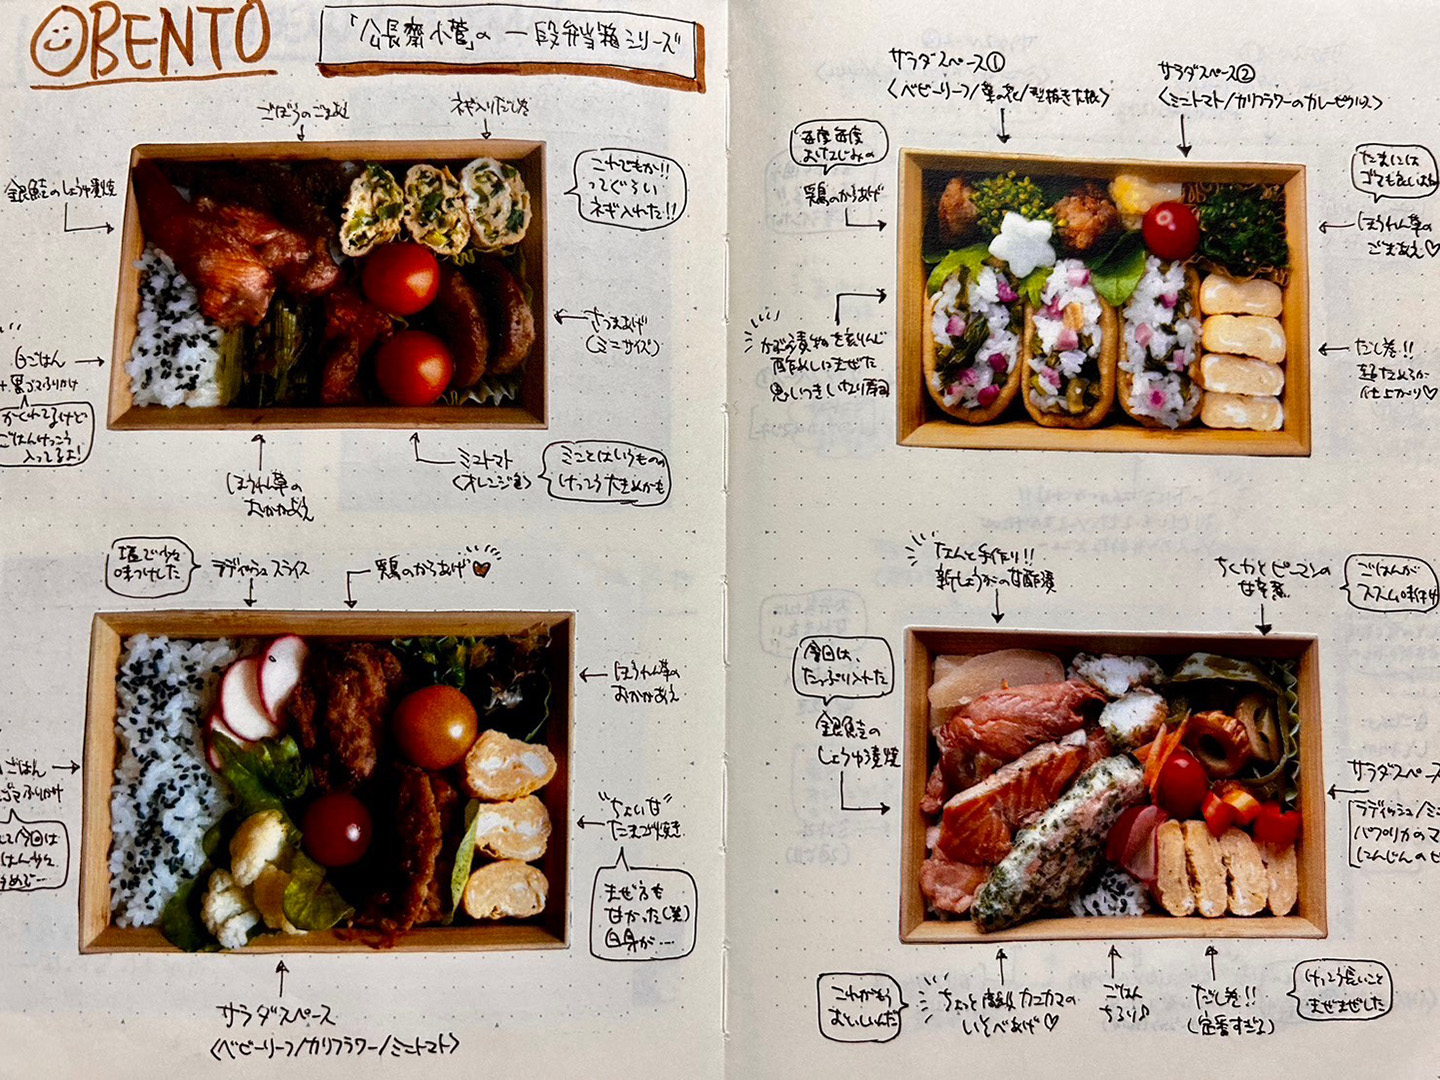 OBENTO
「公長齋小菅」の 一段弁当箱シリーズ
ごぼうのごまあえ
ネギ入りだし巻
銀鮭のしょうゆ漬焼
これでもか!!
ってぐらい
ネギ入れた!!
さつまあげ
(ミニサイズ)
白ごはん
+黒ゴマふりかけ
かくれてるけど
ごはんけっこう
入ってるよ!
ほうれん草の
おかかあえ
ミニトマト
<オレンジ色>
ミニとはいうものの
けっこう大きめかも
塩で少々
味つけした
ラディッシュスライス
鶏のからあげ
ほうれん草の
おかかあえ
ごはん
ゴマふりかけ
今回は
ごはん少々
"ちょい甘"
たまご焼き
まぜるも
なかった(笑)
白身が…
サラダスペース
<ベビーリーフ/カリフラワー/ミニトマト>
サラダスペース①
<ベビーリーフ/菜の花/型抜き大根>
サラダスペース②
<ミニトマト/カリフラワーのカレーピクルス>
毎度毎度
おなじみの
鶏のからあげ
たまには
ほうれん草の
ごまあえ♡
かぶの漬物を刻んで
酢めしにまぜた
思いつきいなり寿司
だし巻!!
仕上がり♡
なんと手作り!!
新しょうがの甘酢漬
ちくわとピーマンの
甘辛煮
ごはんが
ススム味付け
今回は、
たっぷり入れた
銀鮭の
しょうゆ漬焼
サラダスペース
ラディッシュ/ミニ
パプリカのマ
にんじんのピ
これがもう
おいしいんだ
ちょっと カニカマの
いそべあげ♡
ごはん
ちろり♪
だし巻!!
(定番すぎる)
けっこう長いこと
まぜませした